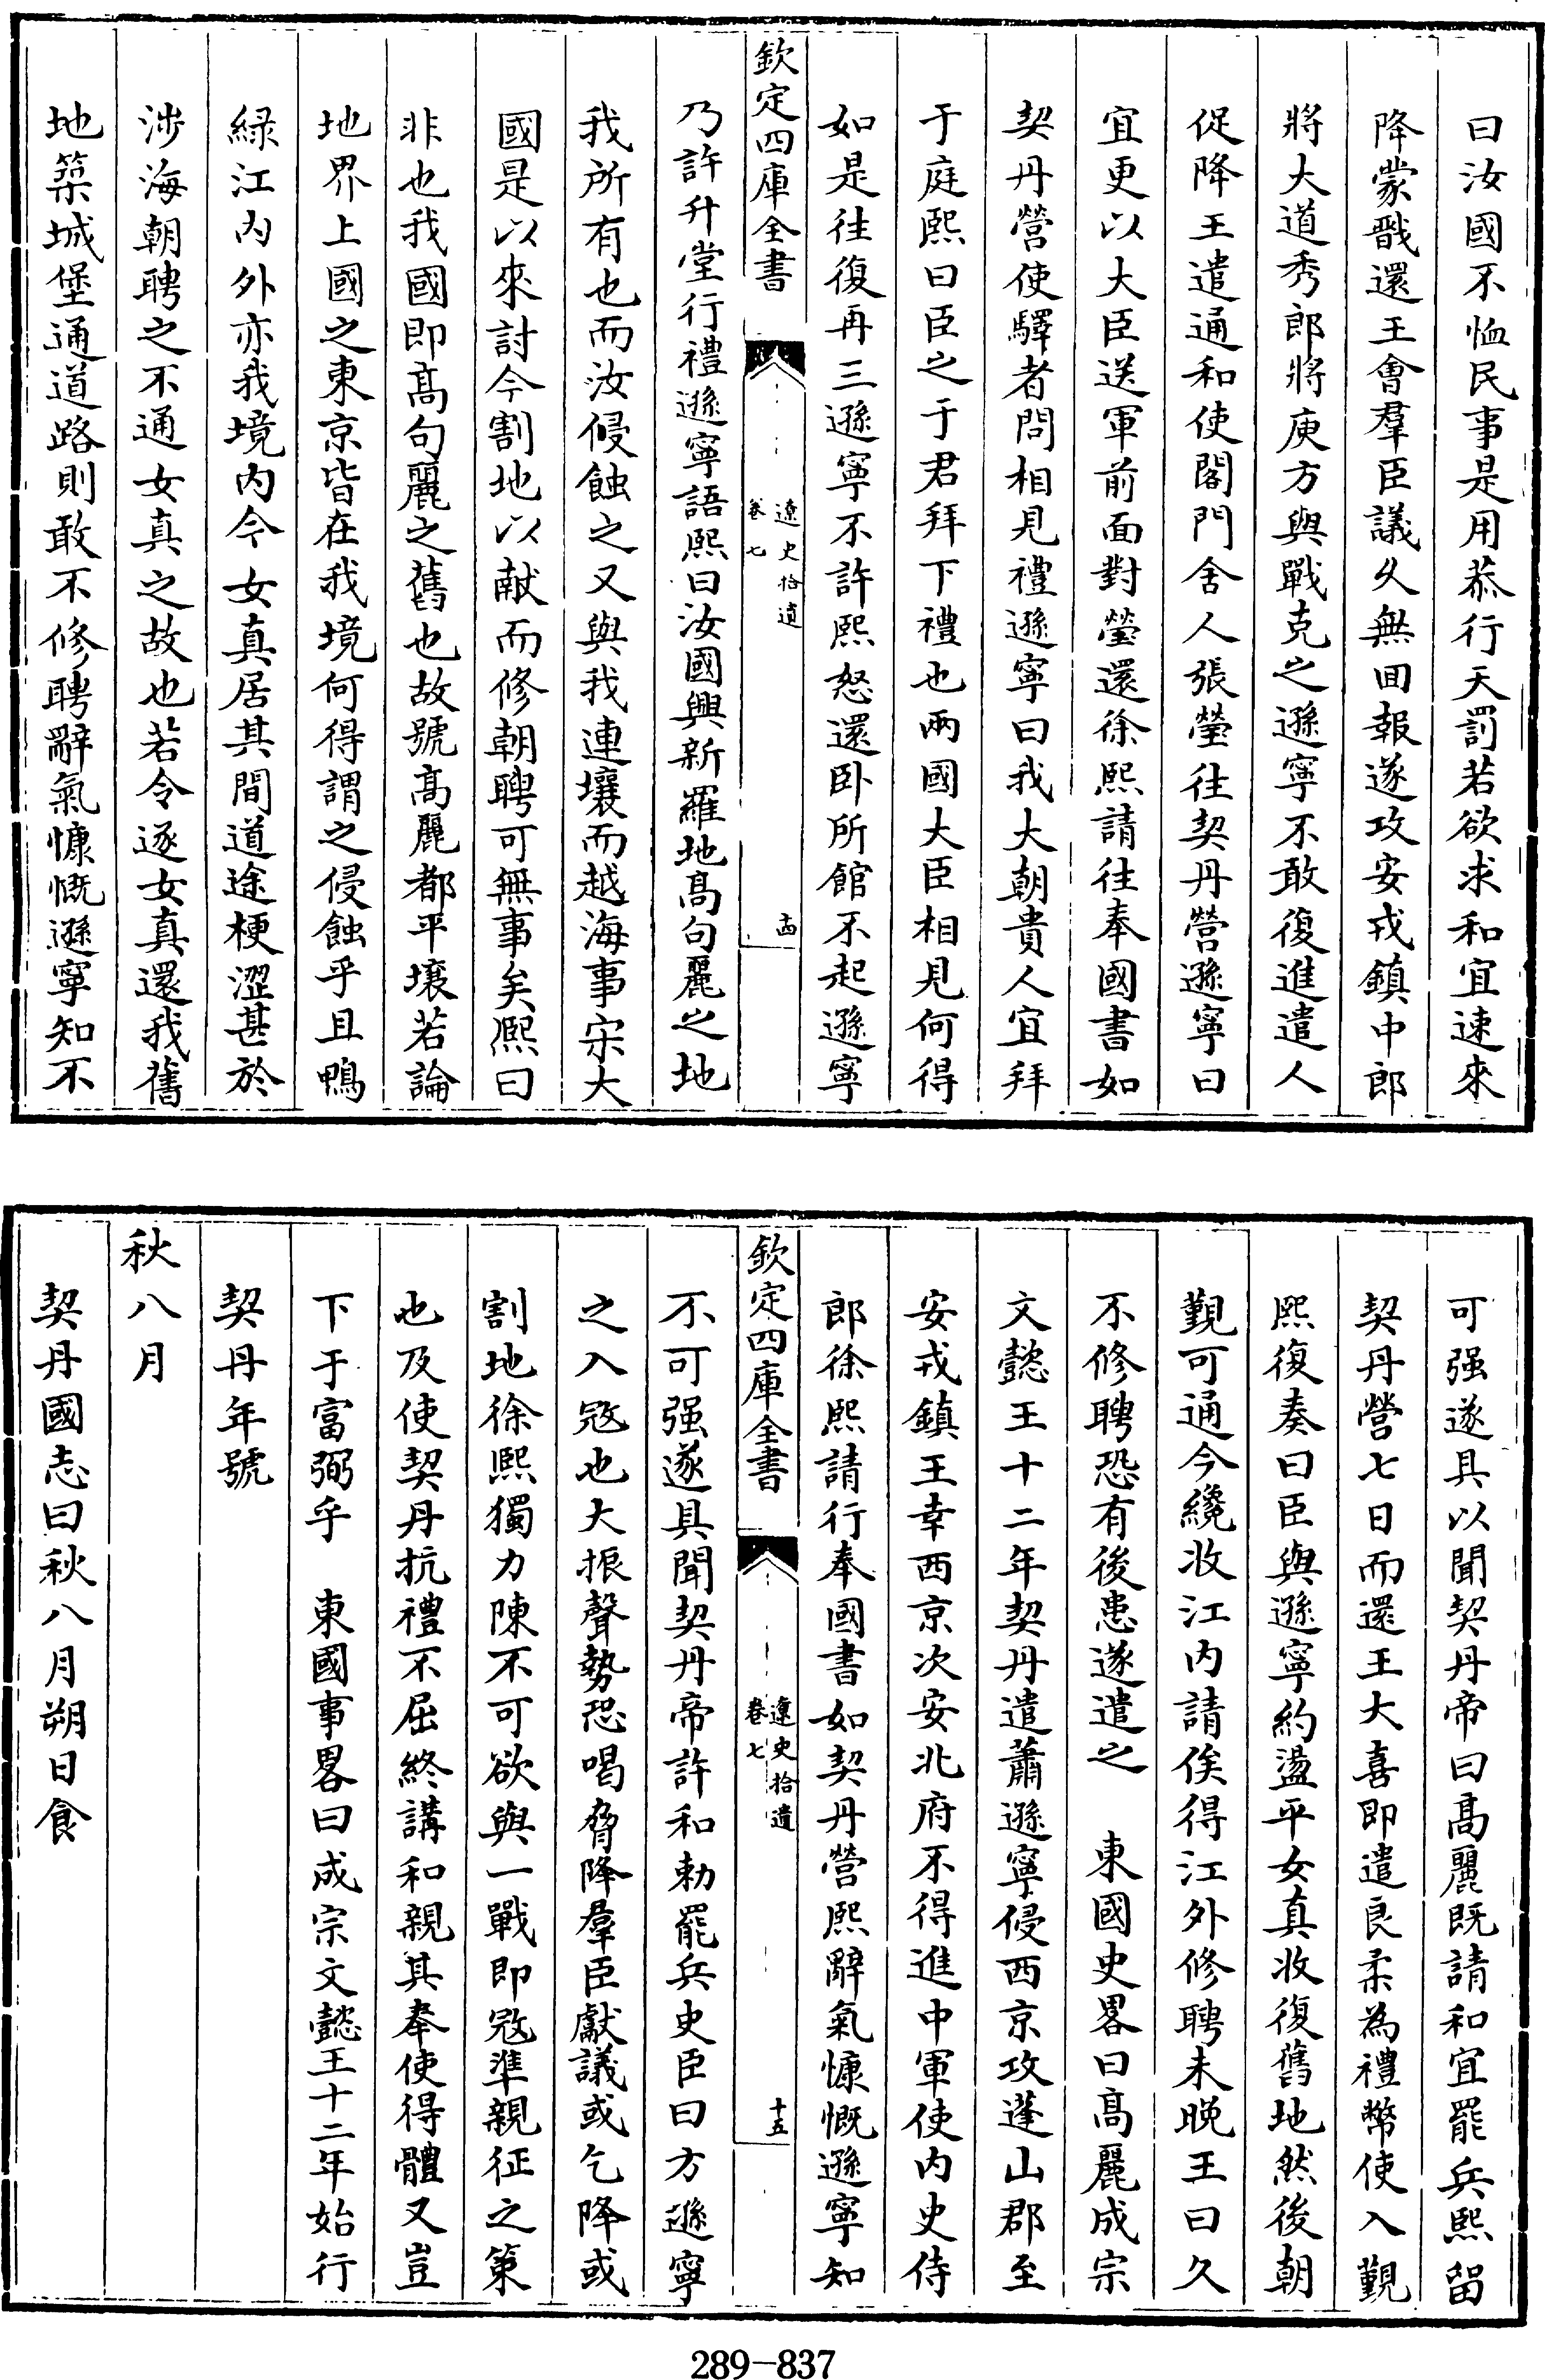 曰汝國不恤民事是用恭行天罰若欲求和宜速來
降蒙戩還王會羣臣議久無回報遂攻安戎鎮中郎
將大道秀郎將庾方與戰克之遜寧不敢復進遣人
促降王遣通和使閤門舍人張瑩往契丹營遜寧曰
宜更以大臣送軍前面對瑩還徐熙請往奉國書如
契丹營使驛者問相見禮遜寧曰我大朝貴人宜拜
于庭熙曰臣之于君拜下禮也兩國大臣相見何得
如是往復再三遜寧不許熙怒還卧所館不起遜寧
欽定四庫全書
遼史拾遺
卷七
十四
乃許升堂行禮遜寧語熙曰汝國興新羅地高句麗之地
我所有也而汝侵蝕之又與我連壤而越海事宋大
國是以來討今割地以獻而修朝聘可無事矣熙曰
非也我國即高句麗之舊也故號高麗都平壤若論
地界上國之東京皆在我境何得謂之侵蝕乎且鴨
緑江內外亦我境内今女真居其間道途梗澀甚於
涉海朝聘之不通女真之故也若令逐女真還我舊
地築城堡通道路則敢不修聘辭氣慷慨遜寧知不
可强遂具以聞契丹帝曰高麗既請和宜罷兵熙留
契丹營七日而還王大喜即遣良柔為禮幣使入覲
熙復奏曰臣與遜寧約盪平女真收復舊地然後朝
覲可通今纔收江内請俟得江外修聘未晚王曰久
不修聘恐有後患遂遣之　東國史畧曰高麗成宗
文懿王十二年契丹遣蕭遜寧侵西京攻蓬山郡至
安戎鎮王幸西京次安北府不得進中軍使内史侍
郎徐熙請行奉國書如契丹營熙辭氣慷慨遜寧知
欽定四庫全書
遼史拾遺
卷七
十五
不可强遂具聞契丹帝許和勅罷兵史臣曰方遜寧
之入冦也大振聲勢恐喝脅降羣臣獻議或乞降或
割地徐熙獨力陳不可欲與一戰即冦準親征之策
也及使契丹抗禮不屈終講和親其奉使得體又豈
下于富弼乎　東國事畧曰成宗文懿王十二年始行
契丹年號
秋八月
契丹國志曰秋八月朔日食
289-837